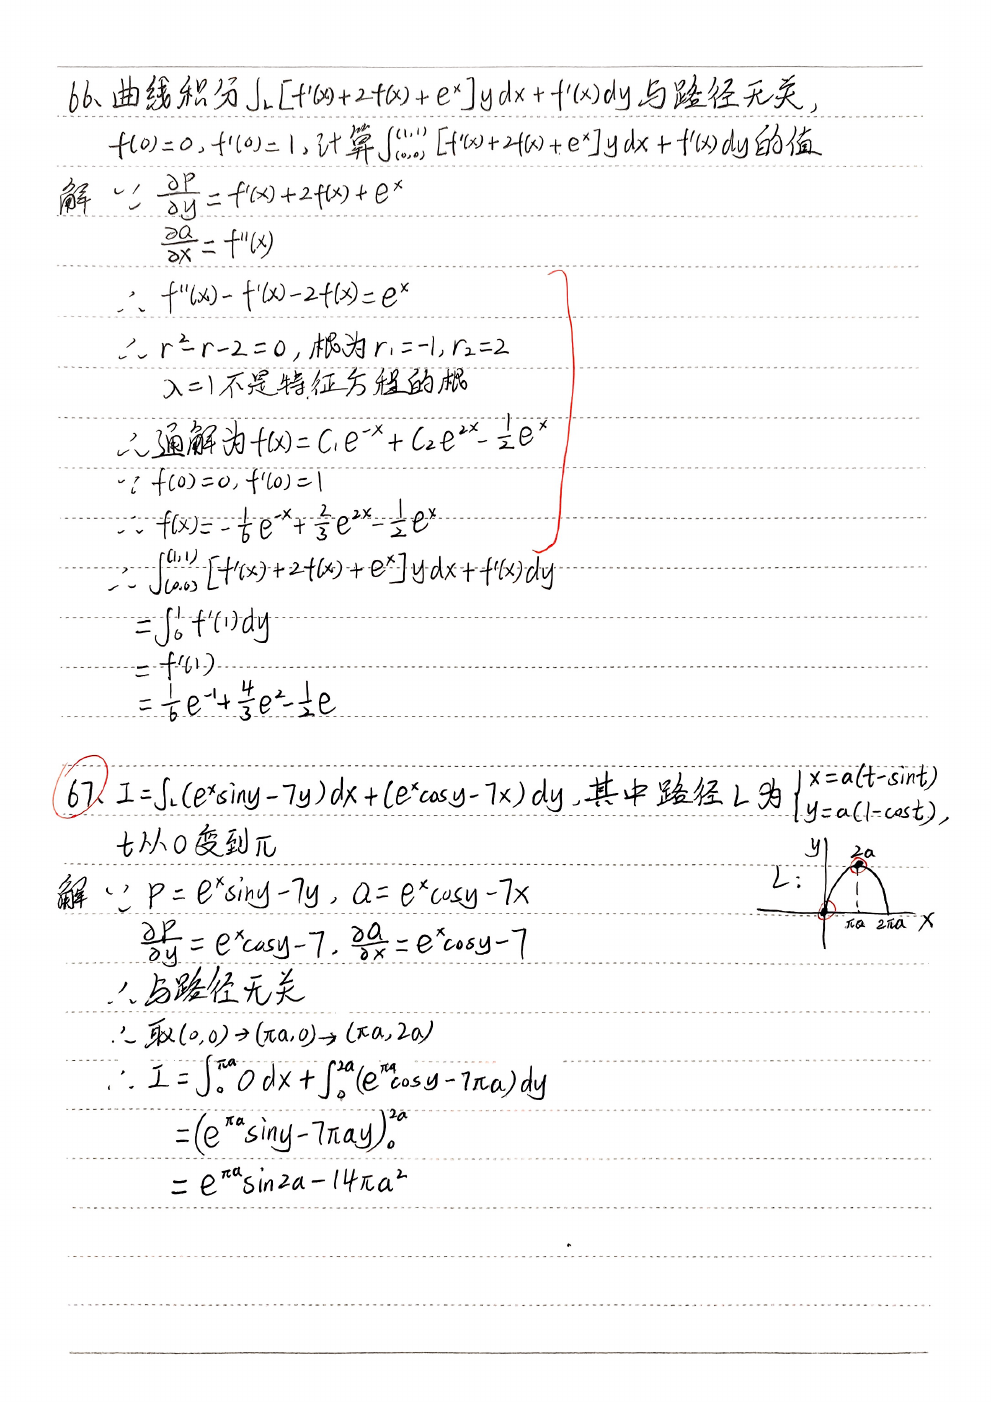 66、曲线积分∫L[f'(x)+2f(x)+eˣ]ydx+f'(x)dy与路径无关,
f(0)=0,f'(0)=1,计算∫₍₀,₀₎⁽¹,¹⁾[f'(x)+2f(x)+eˣ]ydx+f'(x)dy的值
解 ∵ ∂P/∂y=f'(x)+2f(x)+eˣ
∂Q/∂x=f''(x)
∴ f''(x)-f'(x)-2f(x)=eˣ
∴ r²-r-2=0,根为r₁=-1,r₂=2
λ=1不是特征方程的根
∴通解为f(x)=C₁e⁻ˣ+C₂e²ˣ-½eˣ
∵ f(0)=0,f'(0)=1
∴ f(x)=-1/6e⁻ˣ+2/3e²ˣ-1/2eˣ
∴ ∫₍₀,₀₎⁽¹,¹⁾[f'(x)+2f(x)+eˣ]ydx+f'(x)dy
=∫₀¹f'(1)dy
=f'(1)
=1/6e⁻¹+4/3e²-1/2e
67、I=∫L(eˣsiny-7y)dx+(eˣcosy-7x)dy,其中路径L为{x=a(t-sint) y=a(1-cost),
t从0变到π
L: y 2a πa 2πa x
解 ∵ P=eˣsiny-7y, Q=eˣcosy-7x
∂P/∂y=eˣcosy-7, ∂Q/∂x=eˣcosy-7
∴与路径无关
∴取(0,0)→(πa,0)→(πa,2a)
∴ I=∫₀^πa 0dx+∫₀^2a(e^πa cosy-7πa)dy
=(e^πa siny-7πay)₀^2a
=e^πa sin2a-14πa²